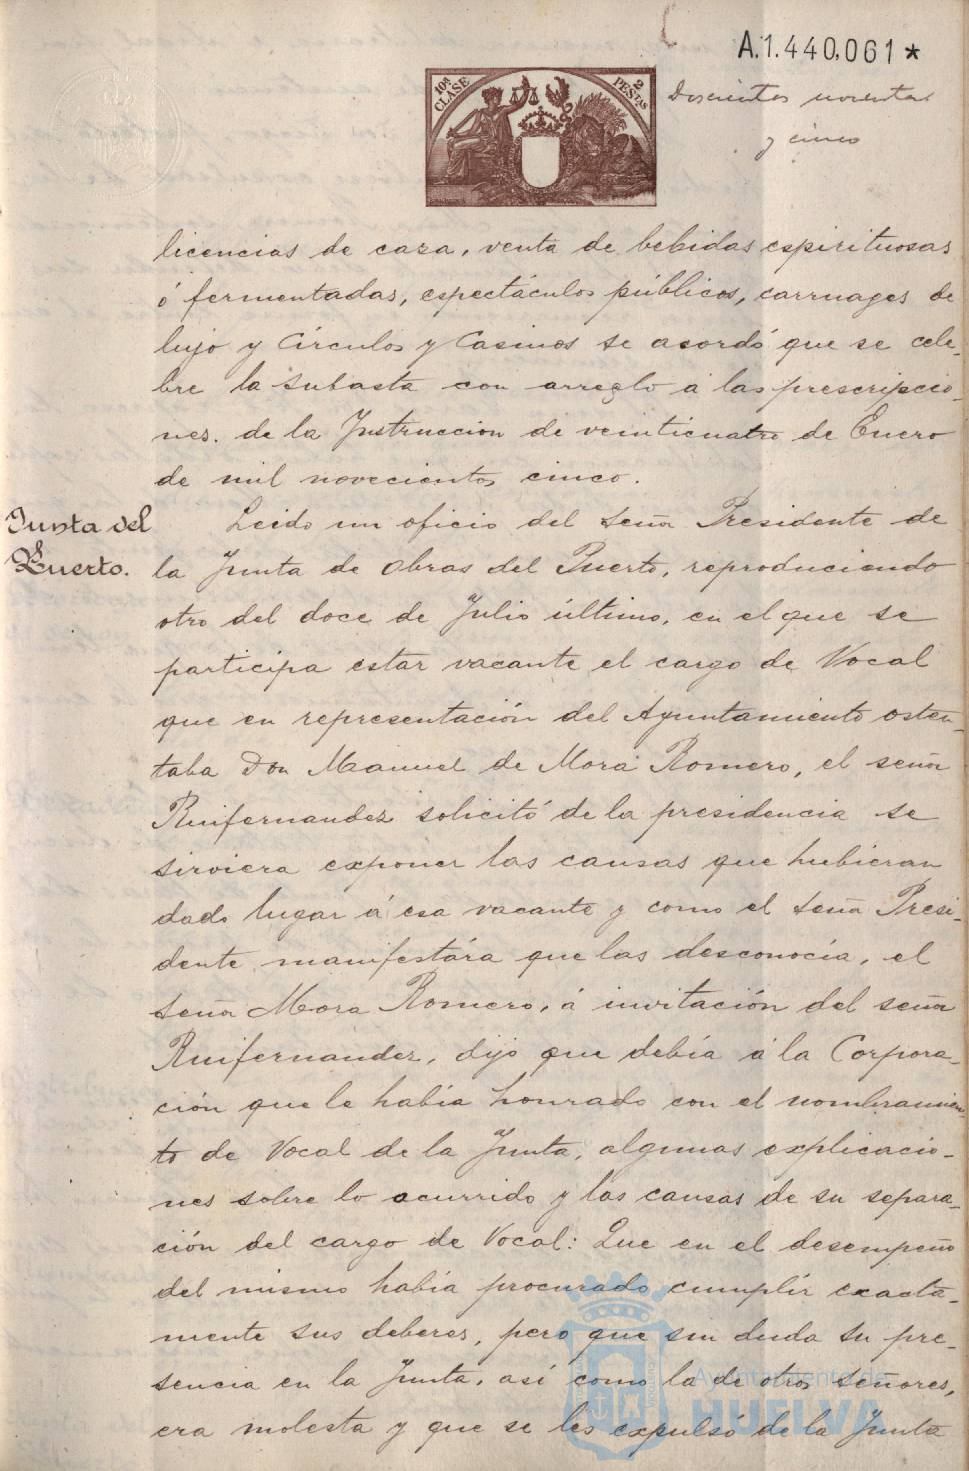 A.1.440,061 *
10ª CLASE
2 PESTAS
Doscientos noventa
y cinco
licencias de caza, venta de bebidas espirituosas
ó fermentadas, espectáculos públicos, carruages de
lujo y Círculos y Casinos se acordó que se cele-
bre la subasta con arreglo á las prescripcio-
nes. de la Instruccion de veinticuatro de Enero
de mil novecientos cinco.
Junta del
Puerto.
Leido un oficio del señor Presidente de
la Junta de Obras del Puerto, reproduciendo
otro del doce de Julio último, en el que se
participa estar vacante el cargo de Vocal
que en representación del Ayuntamiento osten-
taba Don Manuel de Mora Romero, el señor
Ruifernandez solicitó de la presidencia se
sirviera exponer las causas que hubieran
dado lugar á esa vacante y como el señor Presi-
dente manifestára que las desconocía, el
señor Mora Romero, á invitación del señor
Ruifernandez, dijo que debía á la Corpora-
ción que le había honrado con el nombramien-
to de Vocal de la Junta, algunas explicacio-
nes sobre lo ocurrido y las causas de su separa-
ción del cargo de Vocal: Que en el desempeño
del mismo había procurado cumplir exacta-
mente sus deberes, pero que sin duda su pre-
sencia en la Junta, así como la de otros señores,
era molesta y que se les expulsó de la Junta
Ayuntamiento de
HUELVA